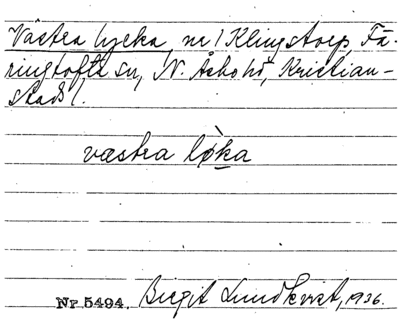 Västra lycka, nr 1 Klingstorp, Fä-
ringtofta sn, N. Åsbo hd, Kristian-
stads l.
væstra løka
Nr 5494. Birgit Lundkvist, 1936.